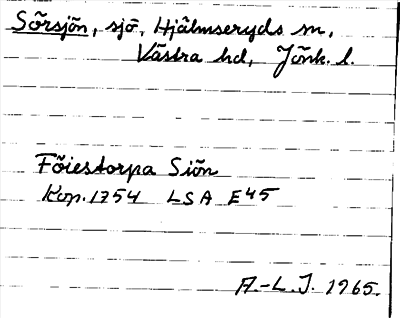 Sörsjön, sjö, Hjälmseryds sn,
Västra hd, Jönk. l.
Föiestorpa Siön
Kop. 1754 LSA E45
A.-L.J. 1965.